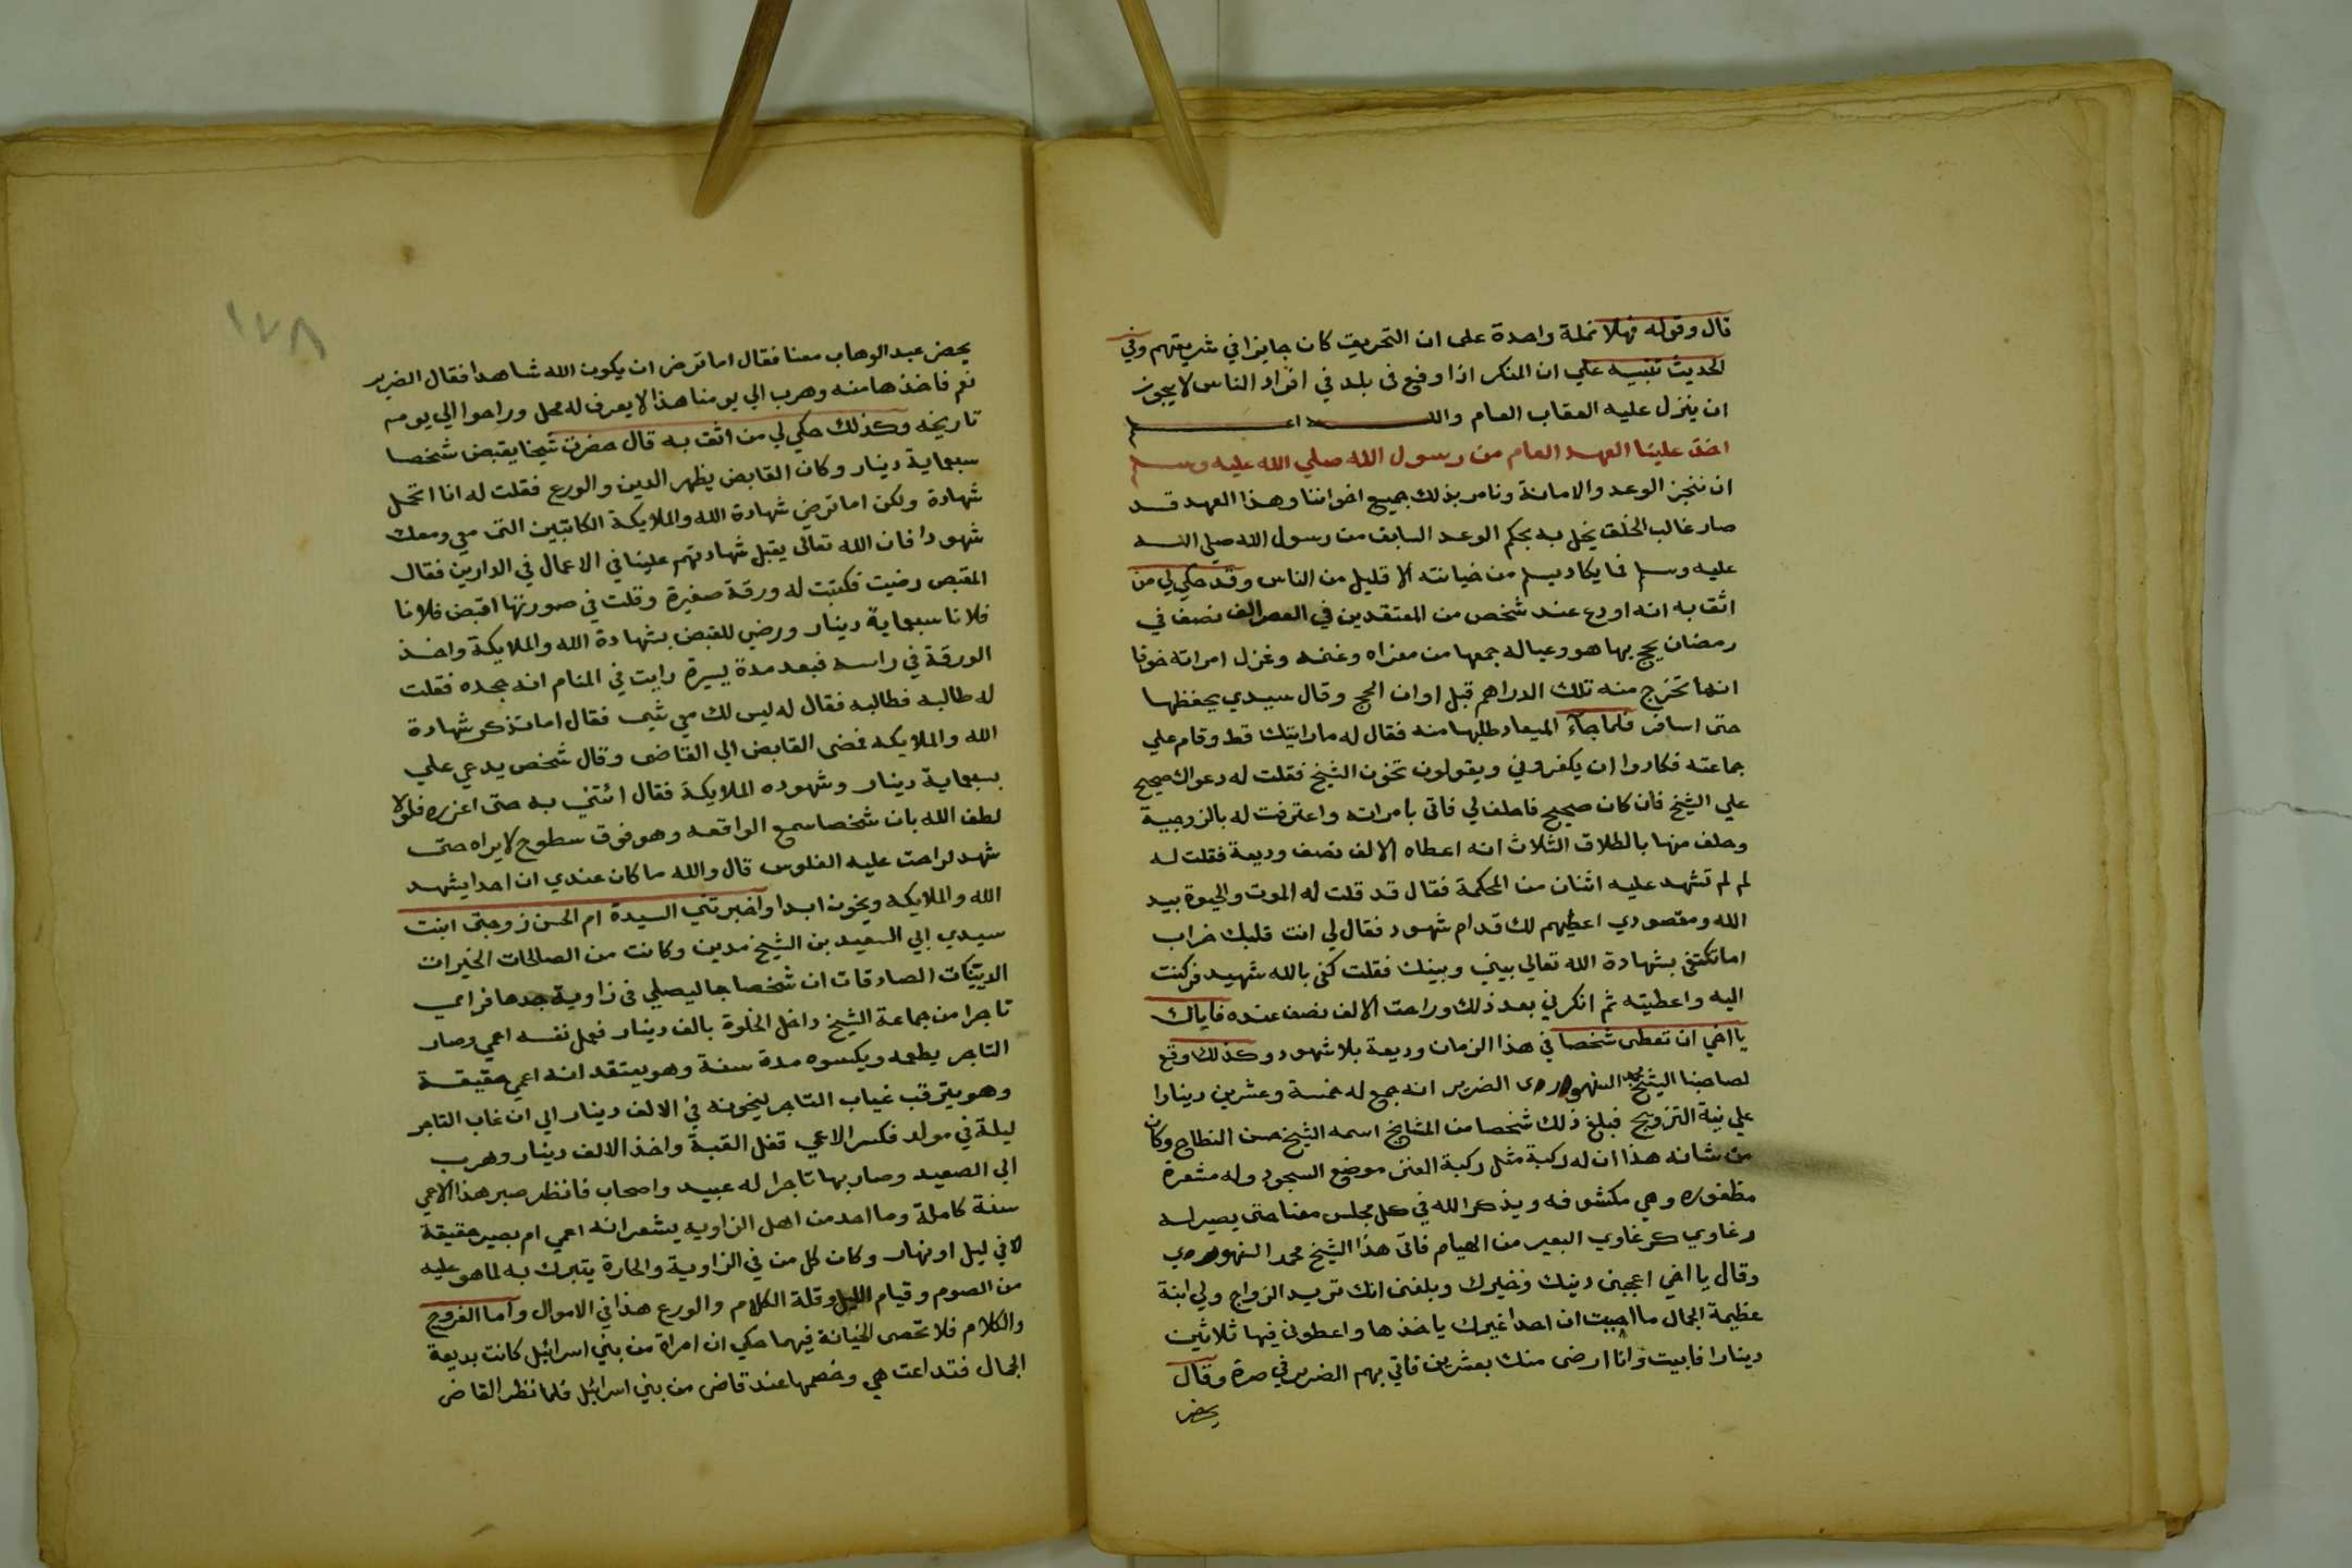 قال وقوله فهلا نملة واحدة على ان التحريق كان جايزا في شريعتهم وفي
الحديث تنبيه علي ان المنكر اذا وقع في بلد في افراد الناس لا يجوز
ان ينزل عليه العقاب العام والله اعلم
اخذ علينا العهد العام من رسول الله صلي الله عليه وسلم
ان ننجز الوعد والامانة ونامر بذلك جميع اخواننا وهذا العهد قد
صار غالب الخلق يخل به بحكم الوعد السابق من رسول الله صلي الله
عليه وسلم فما يكاد يسلم من خيانته الا قليل من الناس وقد حكي لي من
اثق به انه اودع عند شخص من المعتقدين في العصر الف نصف في
رمضان يحج بها هو وعياله جمعها من معزاه وغنمه وغزل امراته خوفا
انها تخرج منه تلك الدراهم قبل اوان الحج وقال سيدي يحفظها
حتى اسافر فلما جآء الميعاد طلبها منه فقال له ما رايتك قط وقام علي
جماعته فكادوا ان يكفروني ويقولون تخون الشيخ فقلت له دعواك صحيح
علي الشيخ فان كان صحيح فاحلف لي فاتى بامراته واعترفت له بالزوجية
وحلف منها بالطلاق الثلاث انه اعطاه الالف نصف وديعة فقلت له
لم لم تشهد عليه اثنان من المحكمة فقال قد قلت له الموت والحيوة بيد
الله ومقصودي اعطيهم لك قدام شهود فقال لي انت قلبك خراب
اما تكتفي بشهادة الله تعالي بيني وبينك فقلت كفى بالله شهيد فركنت
اليه واعطيته ثم انكرني بعد ذلك وراحت الالف نصف عنده فاياك
يا اخي ان تعطى شخصا في هذا الزمان وديعة بلا شهود وكذلك وقع
لصاحبنا الشيخ محمد السنهوردى الضرير انه جمع له خمسة وعشرين دينارا
علي نية التزويج فبلغ ذلك شخصا من المشايخ اسمه الشيخ حسن النطاح وكان
من شانه هذا ان له ركبة مثل ركبة العنز موضع السجود وله مشعرة
مظفوره وهي مكشوفه ويذكر الله في كل مجلس معنا حتى يصير له
رغاوي كرغاوي البعير من الهيام فاتى هذا الشيخ محمد السنهوردي
وقال يا اخي اعجبنى دينك وخيرك وبلغنى انك تريد الزواج ولي ابنة
عظيمة الجمال ما احببت ان احدا غيرك ياخذها واعطوني فيها ثلاثين
دينارا فابيت وانا ارضى منك بعشرين فاتي بهم الضرير في صرة وقال
يحضر
١٧٨
يحضر عبد الوهاب معنا فقال اما ترضى ان يكون الله شاهدا فقال الضرير
نعم فاخذها منه وهرب الي يومنا هذا لا يعرف له محل وراحوا الي يومه
تاريخه وكذلك حكي لي من اثق به قال حضرت شيخا يقبض شخصا
سبعماية دينار وكان القابض يظهر الدين والورع فقلت له انا اتحمل
شهادة ولكن اما ترضى شهادة الله والملايكة الكاتبين التى معي ومعك
شهودا فان الله تعالى يقبل شهادتهم علينا في الاعمال في الدارين فقال
المقبض رضيت فكتبت له ورقة صغيرة وقلت في صورتها اقبض فلانا
فلانا سبعماية دينار ورضي للقبض بشهادة الله والملايكة واخذ
الورقة في راسه فبعد مدة يسيرة رايت في المنام انه جحده فقلت
له طالبه فطالبه فقال له ليس لك معي شيى فقال اما تذكر شهادة
الله والملايكه فمضى القابض الي القاضى وقال شخص يدعي علي
بسبعماية دينار وشهوده الملايكة فقال ائتني به حتى اعزره فلولا
لطف الله بان شخصا سمع الواقعه وهو فوق سطوح لا يراه حتى
شهد لراحت عليه الفلوس قال والله ما كان عندي ان احدا يشهد
الله والملايكه ويخون ابدا واخبرتني السيدة ام الحسن زوجتى ابنت
سيدي ابي السعيد بن الشيخ مدين وكانت من الصالحات الخيرات
الدينات الصادقات ان شخصا جا ليصلي في زاوية جدها فراي
تاجرا من جماعة الشيخ داخل الخلوة بالف دينار فعمل نفسه اعمي وصار
التاجر يطعمه ويكسوه مدة سنة وهو يعتقد انه اعمي حقيقة
وهو يترقب غياب التاجر ليخونه في الالف دينار الي ان غاب التاجر
ليلة في مولد فكسر الاعمي قفل القبة واخذ الالف دينار وهرب
الي الصعيد وصار بها تاجرا له عبيد واصحاب فانظر صبر هذا الاعمي
سنة كاملة وما احد من اهل الزاويه يشعر انه اعمي ام بصير حقيقة
لا في ليل او نهار وكان كل من في الزاوية والحارة يتبرك به لما هو عليه
من الصوم وقيام الليل وقلة الكلام والورع هذا في الاموال وآما الفروج
والكلام فلا تحصى الخيانة فيهما حكي ان امراة من بني اسرائيل كانت بديعة
الجمال فتداعت هي وخصمها عند قاض من بني اسرائيل فلما نظر القاضى